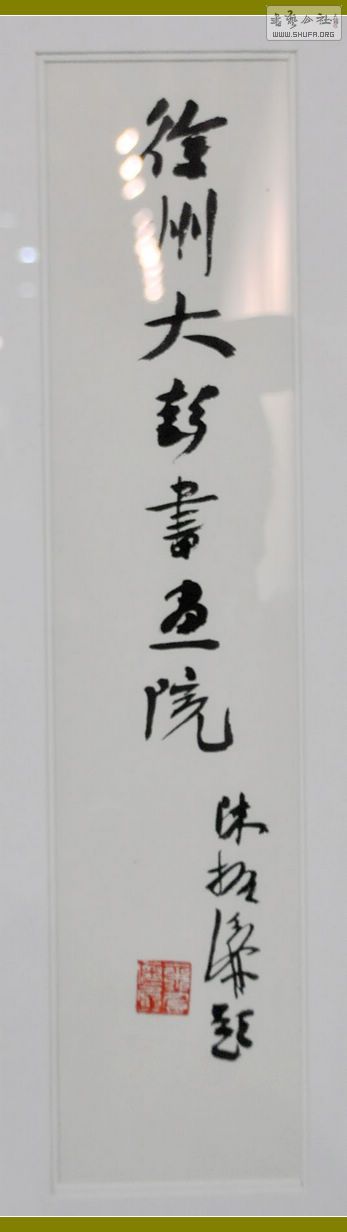 書藝公社
WWW.SHUFA.ORG
徐州大彭書画院
振濂題